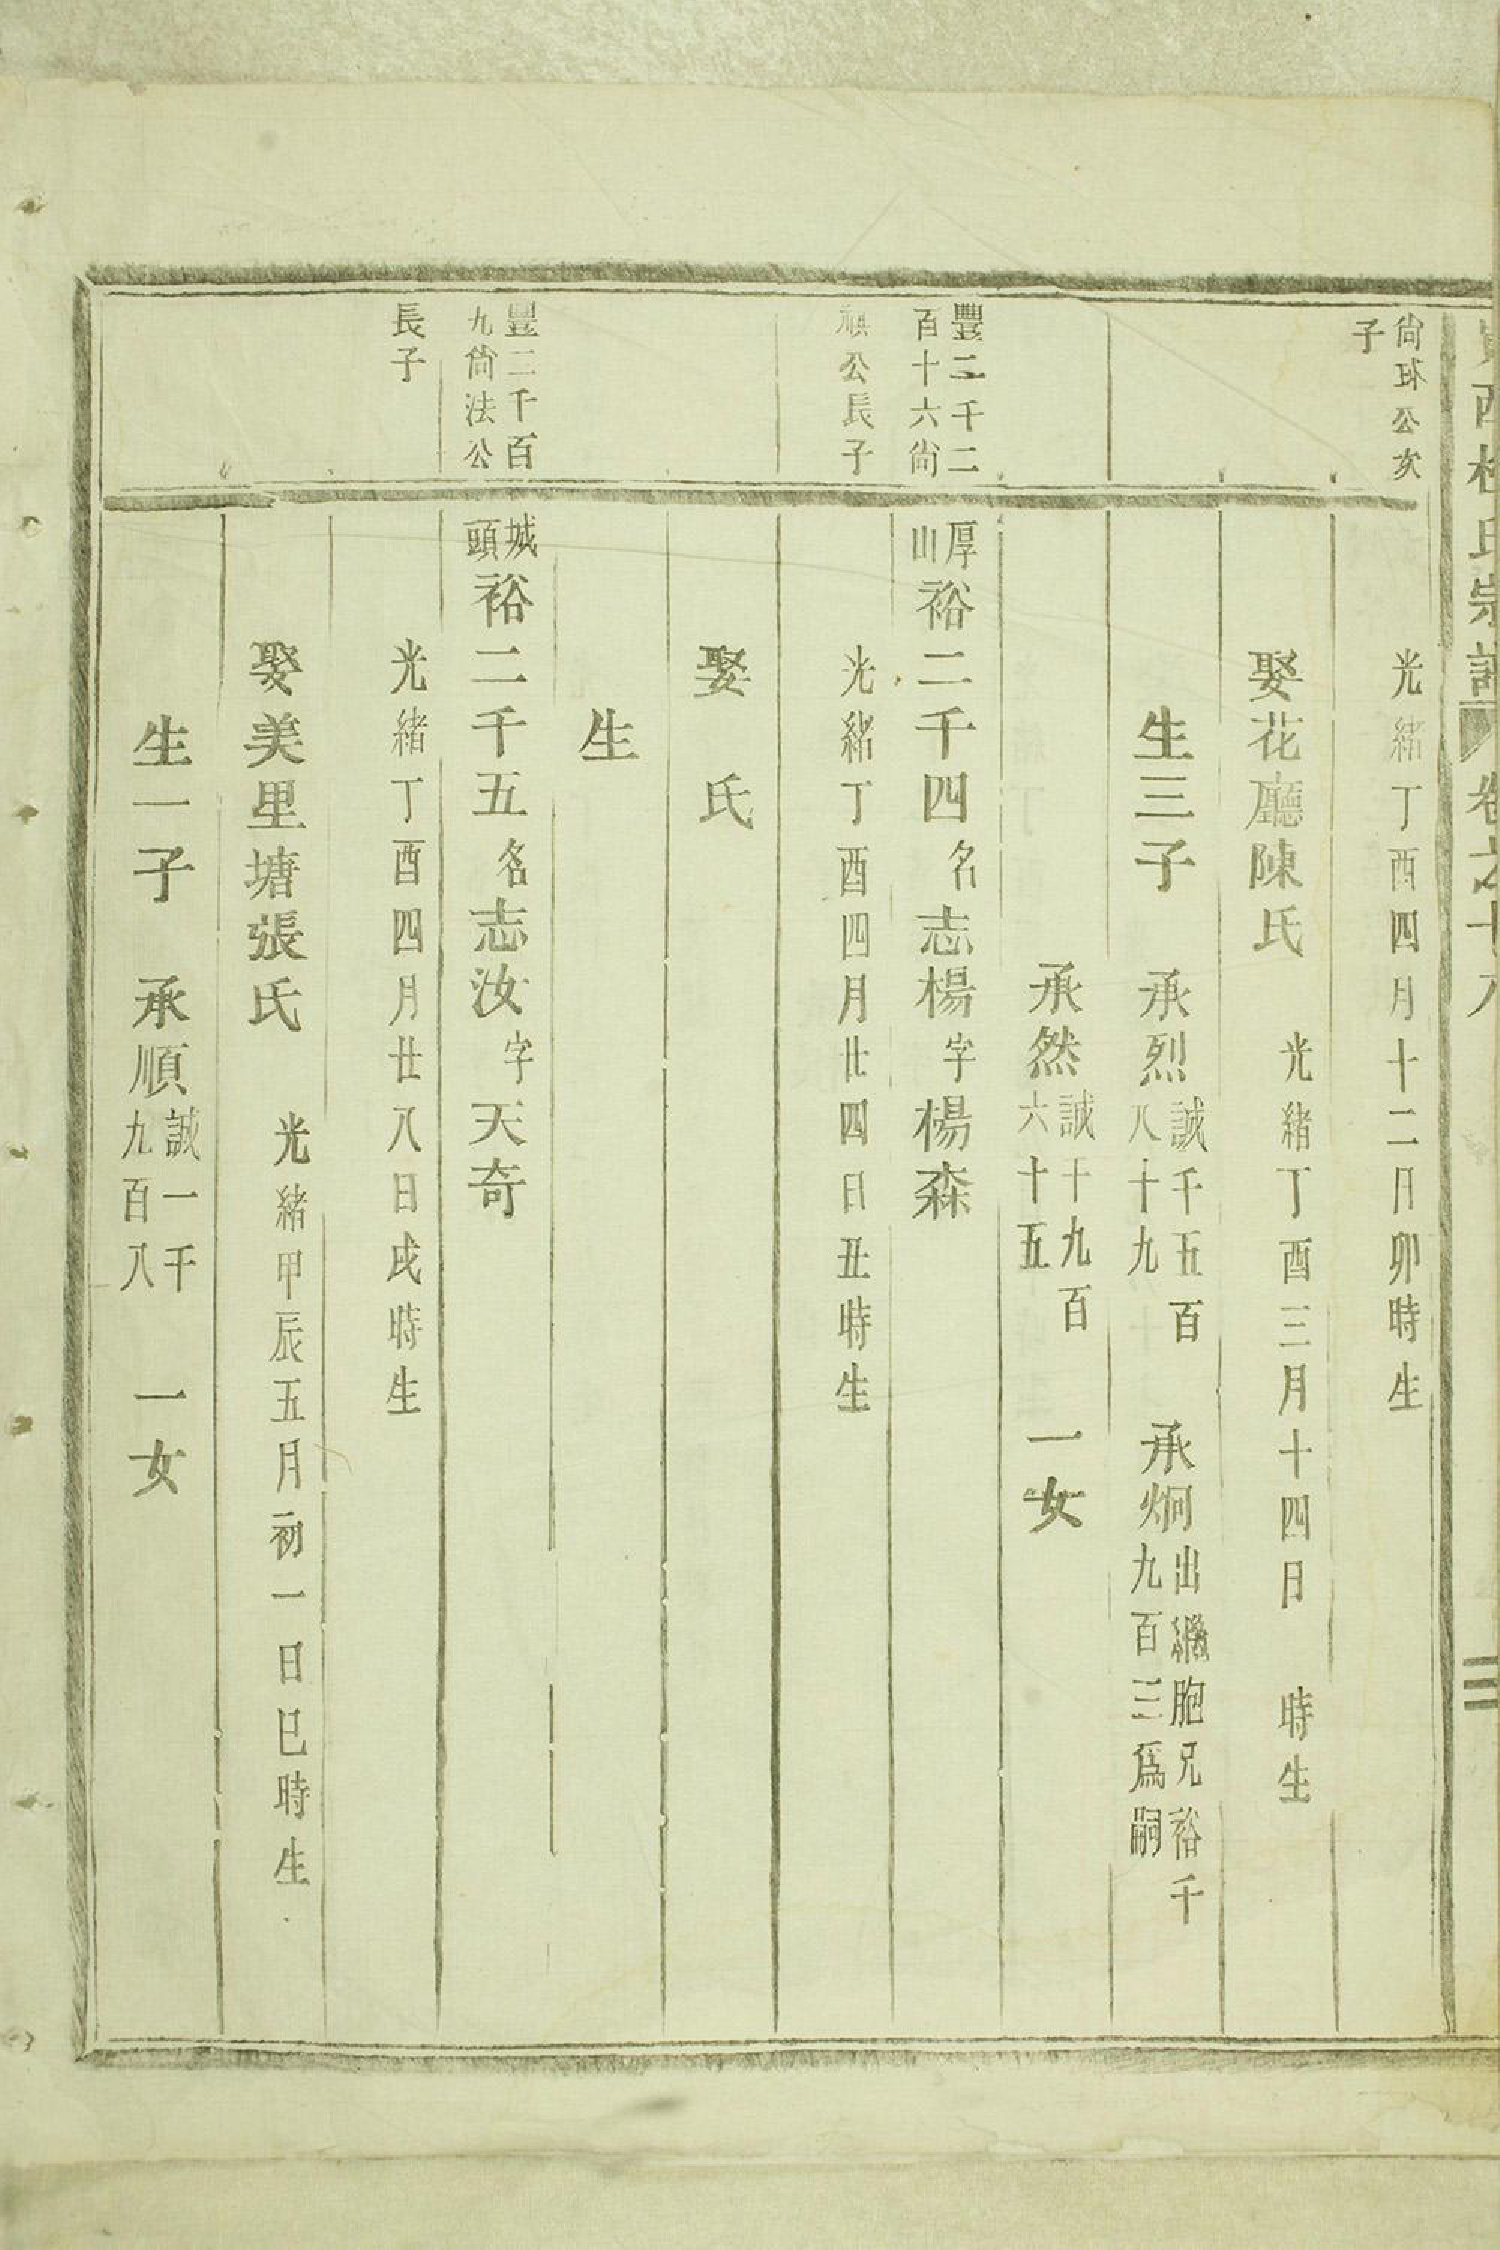 氏宗譜 卷之十八
尙球公次
子
光緒丁酉四月十二日卯時生
娶花廳陳氏 光緒丁酉三月十四日 時生
生三子 承烈誠千五百八十九 承炯出繼胞兄裕千九百三爲嗣
承然誠千九百六十五 一女
豐二千二
百十六尙
祺公長子
厚山裕二千四名志楊字楊森
光緒丁酉四月廿四日丑時生
娶 氏
生
豐二千百
九尙法公
長子
城頭裕二千五名志汝字天奇
光緒丁酉四月廿八日戌時生
娶美里塘張氏 光緒甲辰五月初一日巳時生
生一子 承順誠一千九百八 一女